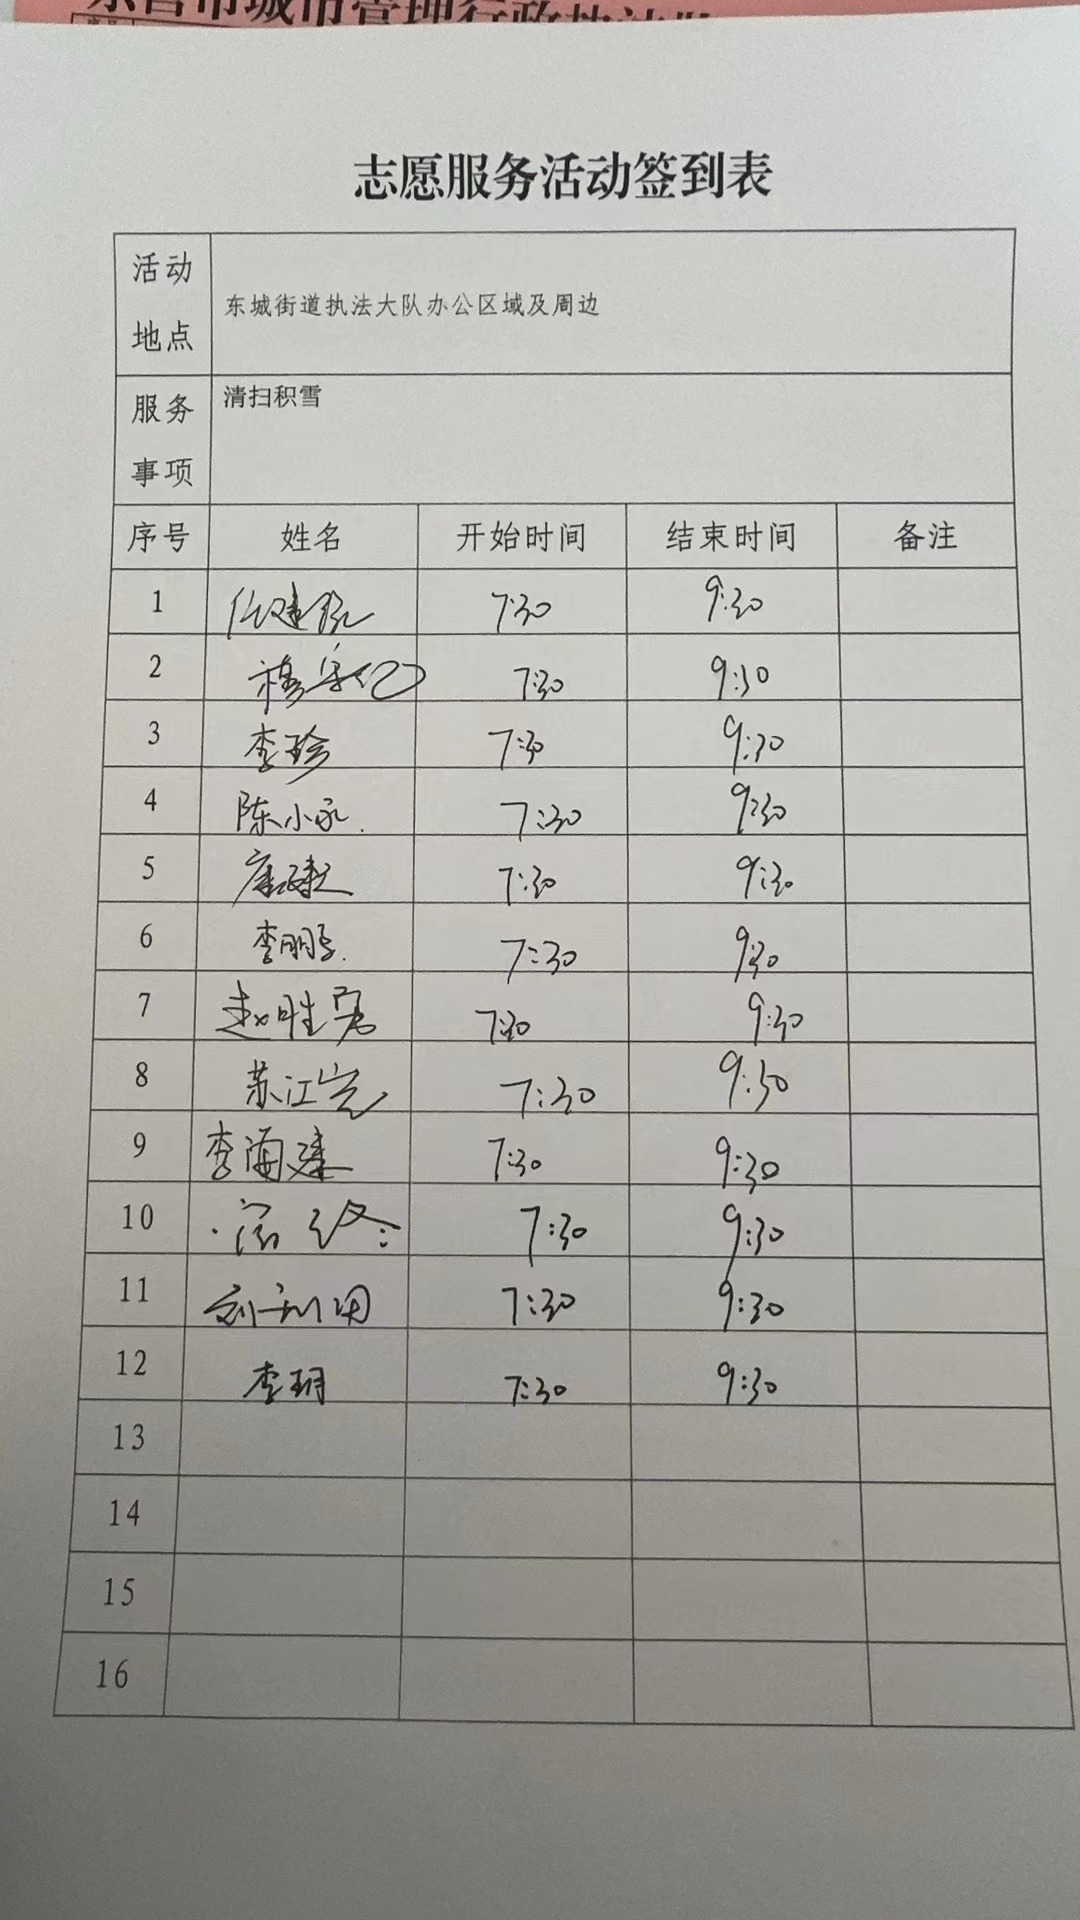 东营市城市管理行政执法
志愿服务活动签到表
活动地点 东城街道执法大队办公区域及周边
服务事项 清扫积雪
序号 姓名 开始时间 结束时间 备注
1 7:30 9:30
2 7:30 9:30
3 李珍 7:30 9:30
4 陈小永 7:30 9:30
5 7:30 9:30
6 李鹏 7:30 9:30
7 赵胜 7:30 9:30
8 苏江 7:30 9:30
9 李海建 7:30 9:30
10 7:30 9:30
11 刘利国 7:30 9:30
12 李玥 7:30 9:30
13
14
15
16